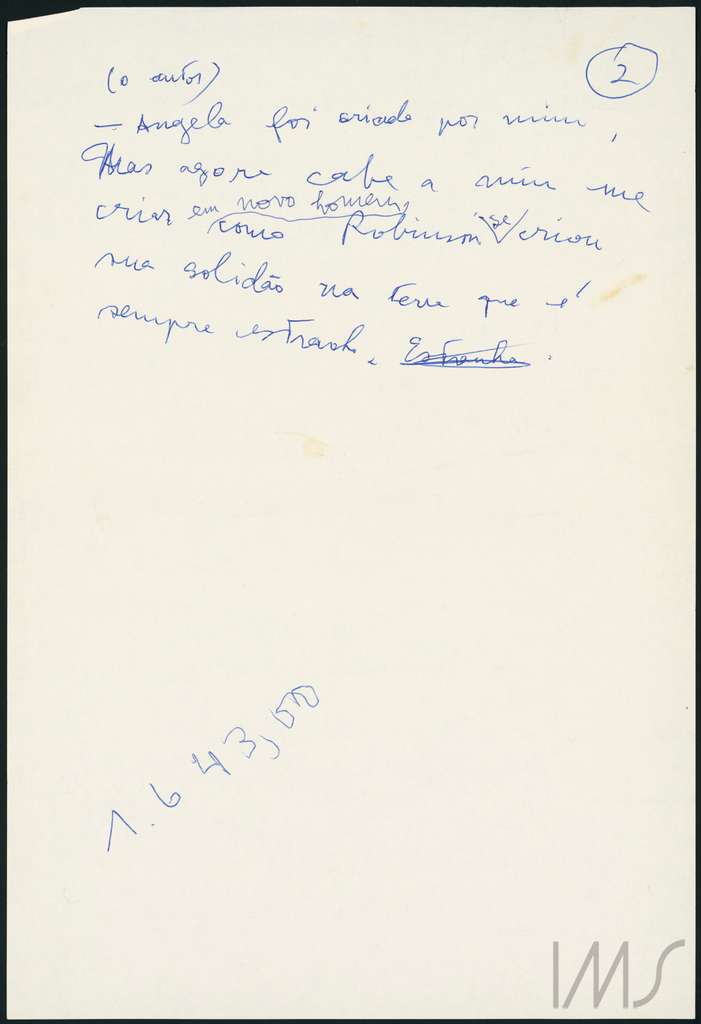 2
(o autor)
— Angela foi criada por mim,
Mas agora cabe a mim me
criar em novo homem,
como Robinson se criou
sua solidão na terra que é
sempre estranha. Estranha.
1.643,00
IMS